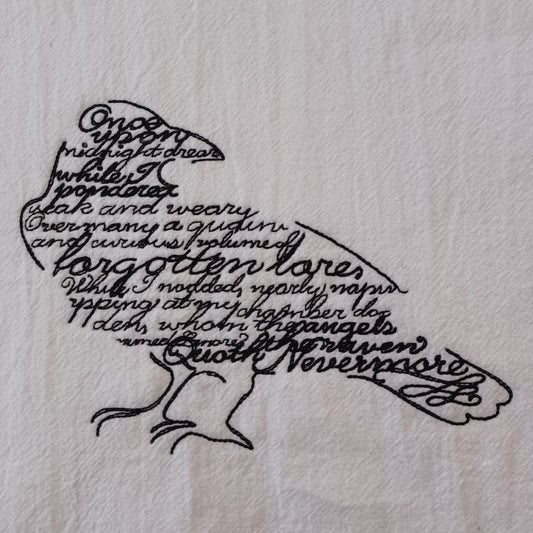 Once
upon
midnight drear
while I
pondered
weak and weary
Over many a quaint
and curious volume of
forgotten lores
While I nodded, nearly napin
ypping at my chamber doo
den, whom the angels
named Lenore? the raven
Quoth Nevermore